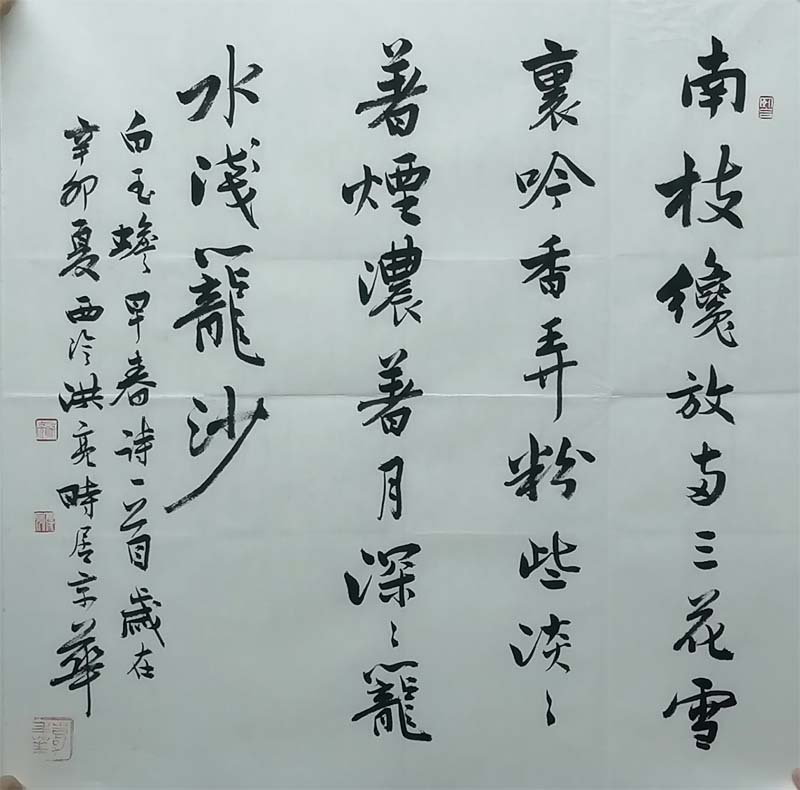 南枝纔放两三花雪
裏吟香弄粉些淡〻
著煙濃著月深〻籠
水淺籠沙
白玉蟾早春詩一首歲在
辛卯夏西泠洪亮時居京華